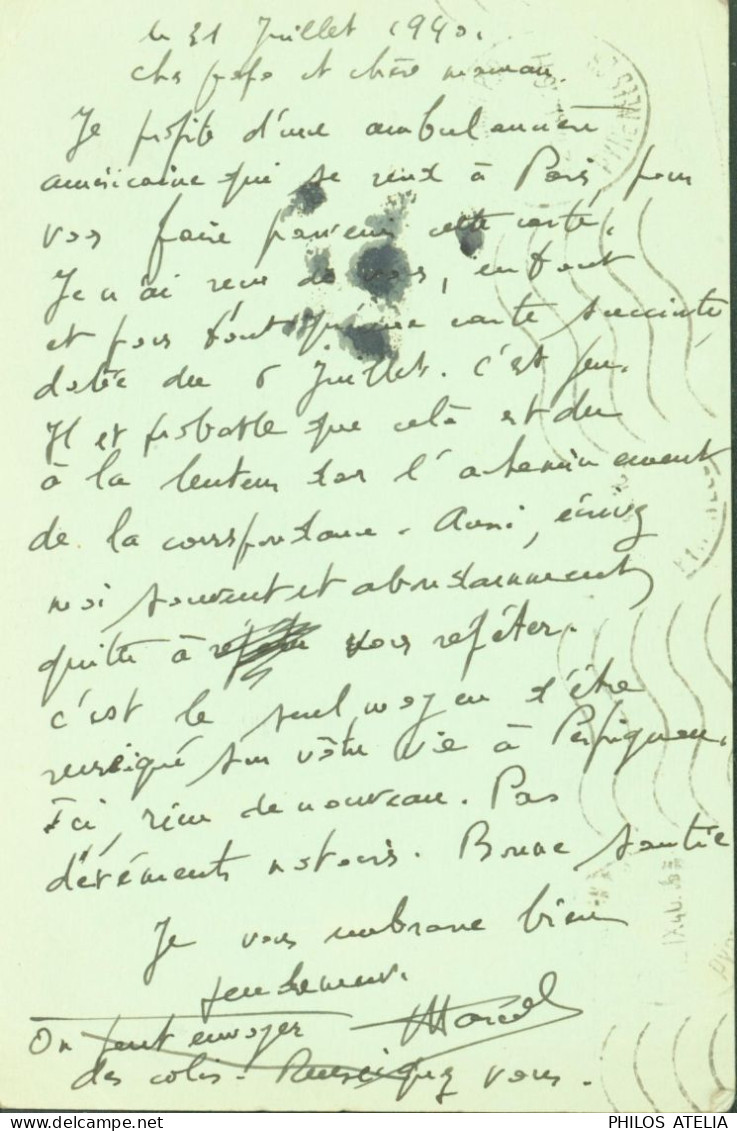 le 31 Juillet 1940.
Cher papa et chère maman.
Je profite d'une ambulancière
américaine qui se rend à Paris, pour
vous faire parvenir cette carte.
Je n'ai reçu de vous, en tout
et pour tout qu'une carte succincte
datée du 6 Juillet. C'est peu.
Il est probable que cela est du
à la lenteur de l'acheminement
de la correspondance. Aussi, écrivez
moi souvent et abondamment,
quitte à vous répéter.
C'est le seul moyen d'être
renseigné sur votre vie à Perpignan.
Ici, rien de nouveau. Pas
d'événements notoires. Bonne santé
Je vous embrasse bien
tendrement.
Marcel
On peut envoyer
des colis. Renseignez vous.
PHILOS ATELIA